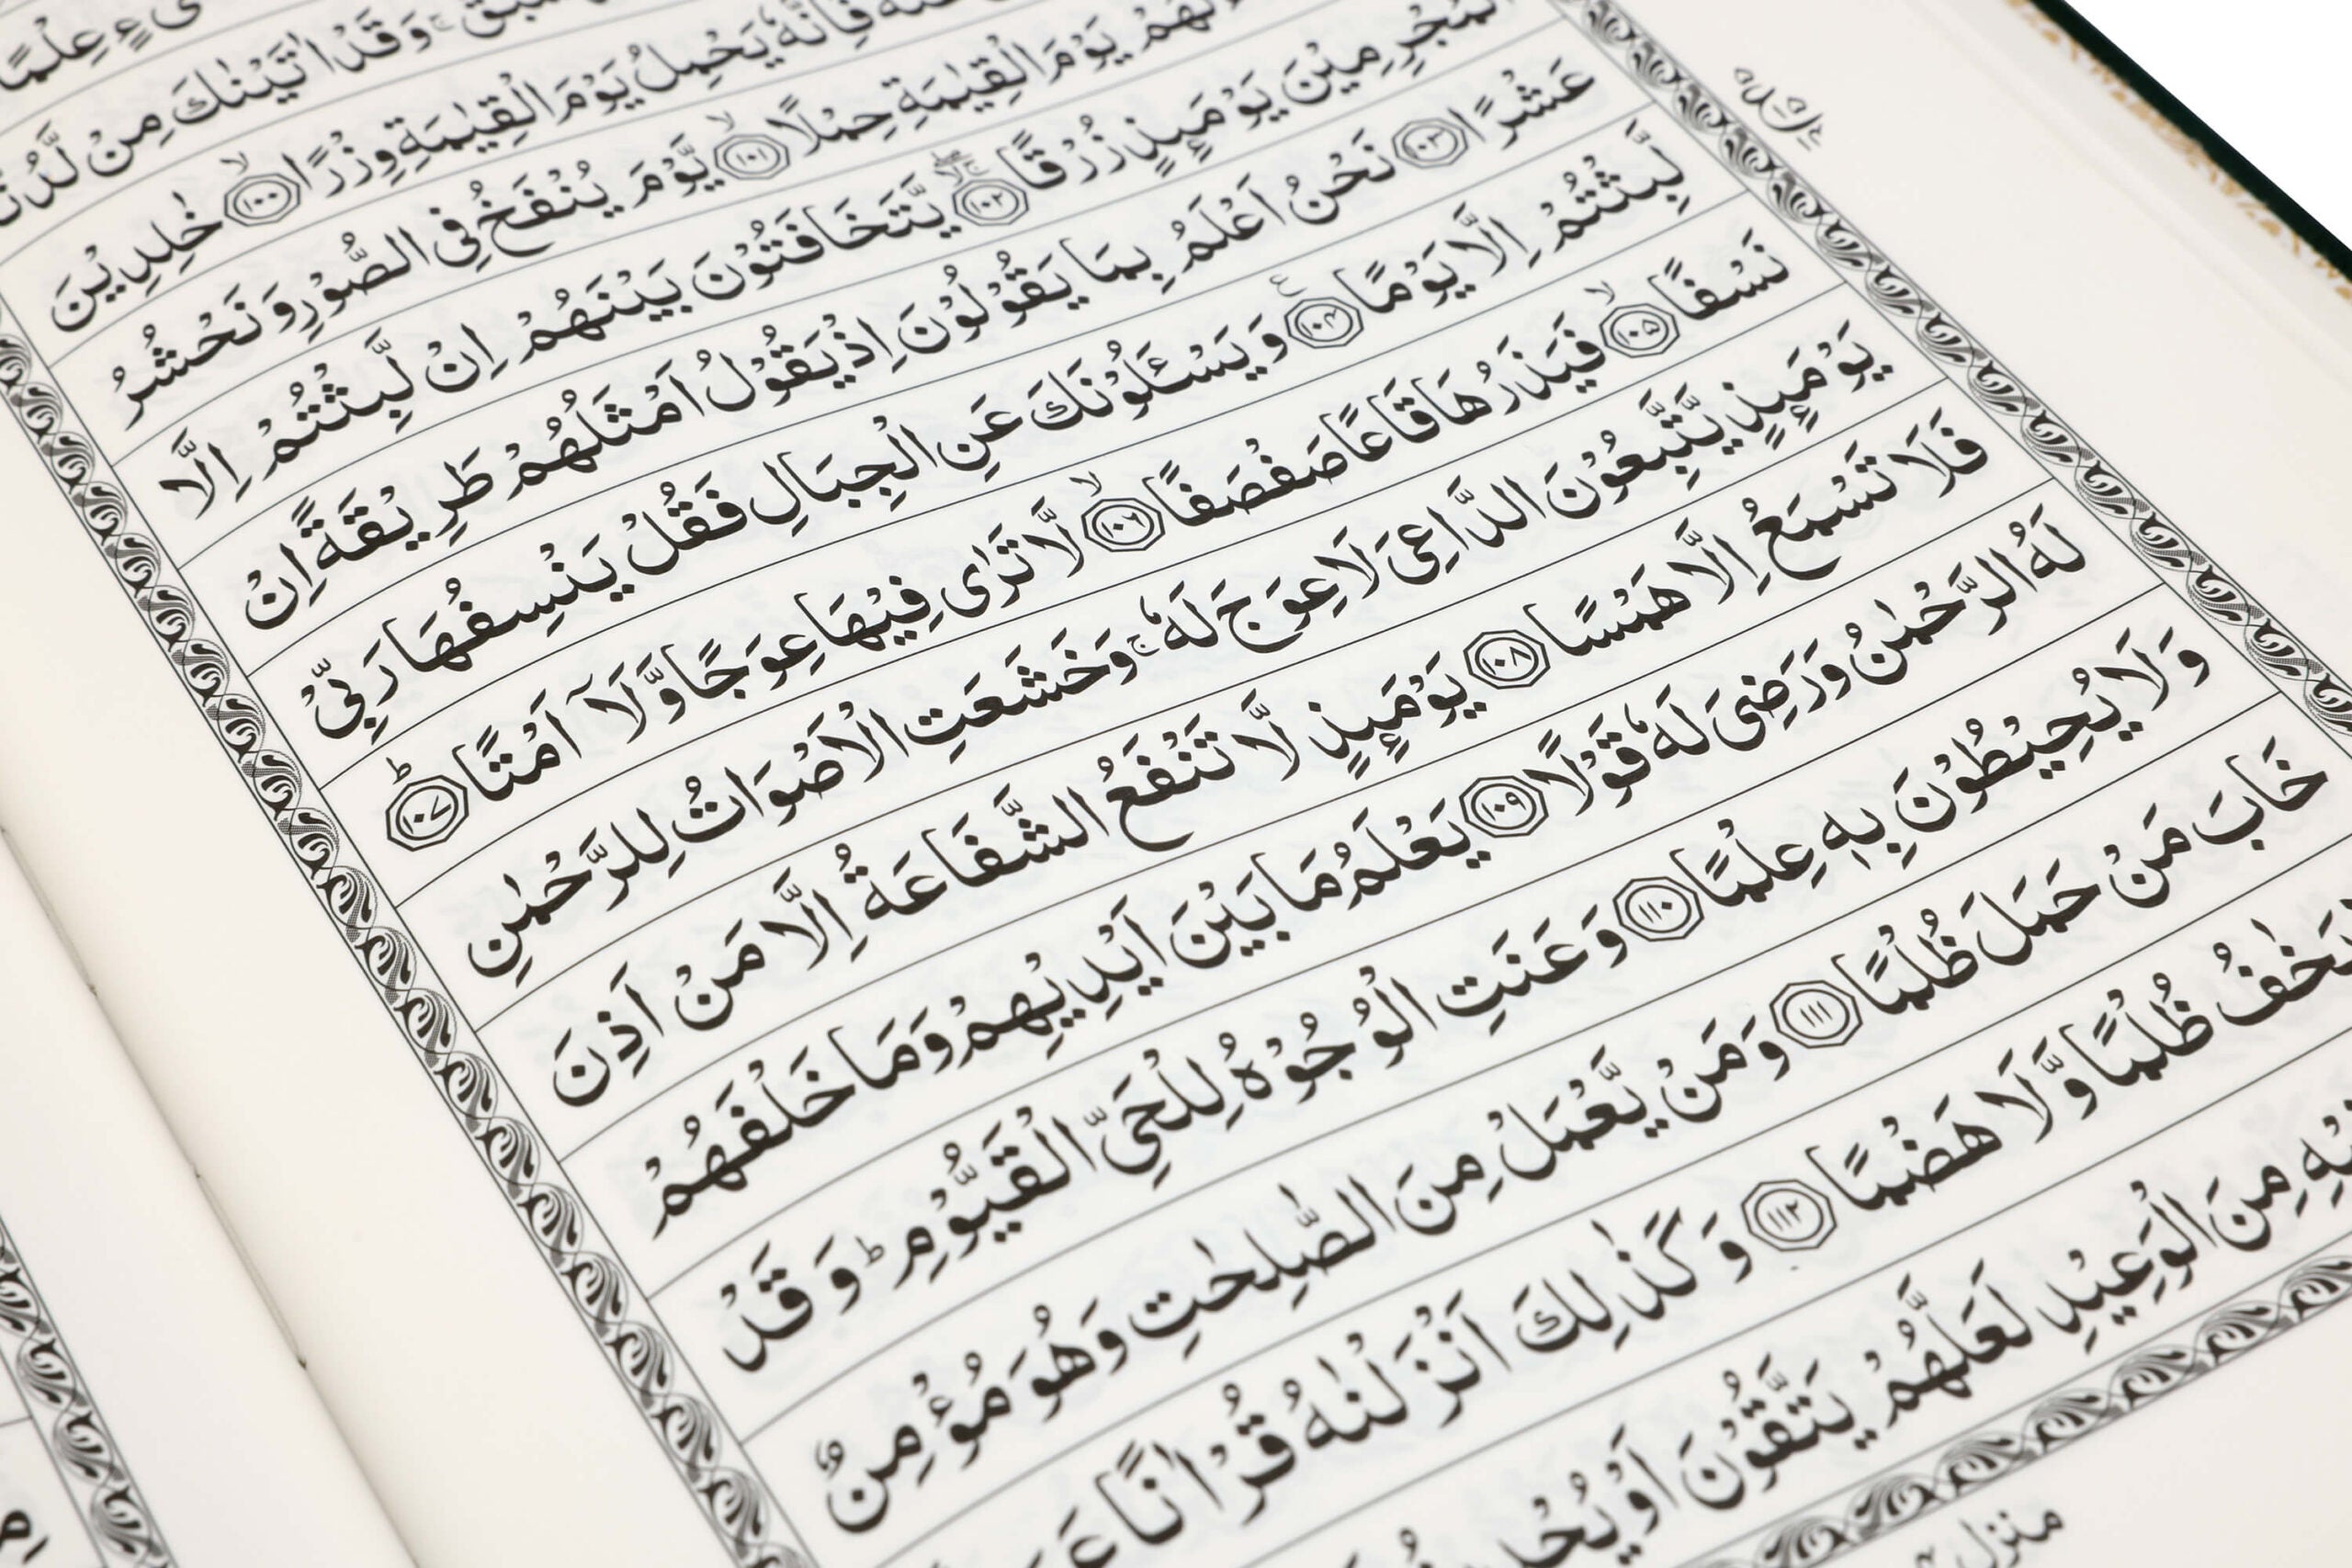 عِلْمًا
وَقَدْ اٰتَيْنٰكَ مِنْ لَّدُنَّا
فَاِنَّهٗ يَحْمِلُ يَوْمَ الْقِيٰمَةِ وِزْرًا ۙ﴿۱۰۰﴾ خٰلِدِيْنَ
لَهُمْ يَوْمَ الْقِيٰمَةِ حِمْلًا ۙ﴿۱۰۱﴾ يَّوْمَ يُنْفَخُ فِى الصُّوْرِ وَنَحْشُرُ
الْمُجْرِمِيْنَ يَوْمَٮِٕذٍ زُرْقًا ﴿۱۰۲﴾ يَّتَخَافَتُوْنَ بَيْنَهُمْ اِنْ لَّبِثْتُمْ اِلَّا
عَشْرًا ﴿۱۰۳﴾ نَحْنُ اَعْلَمُ بِمَا يَقُوْلُوْنَ اِذْ يَقُوْلُ اَمْثَلُهُمْ طَرِيْقَةً اِنْ
لَّبِثْتُمْ اِلَّا يَوْمًا ﴿۱۰۴﴾ وَيَسْـَٔلُوْنَكَ عَنِ الْجِبَالِ فَقُلْ يَنْسِفُهَا رَبِّىْ
نَسْفًا ۙ﴿۱۰۵﴾ فَيَذَرُهَا قَاعًا صَفْصَفًا ۙ﴿۱۰۶﴾ لَّا تَرٰى فِيْهَا عِوَجًا وَّلَآ اَمْتًا ؕ﴿۱۰۷﴾
يَوْمَٮِٕذٍ يَّتَّبِعُوْنَ الدَّاعِىَ لَا عِوَجَ لَهٗ ۚ وَخَشَعَتِ الْاَصْوَاتُ لِلرَّحْمٰنِ
فَلَا تَسْمَعُ اِلَّا هَمْسًا ﴿۱۰۸﴾ يَوْمَٮِٕذٍ لَّا تَنْفَعُ الشَّفَاعَةُ اِلَّا مَنْ اَذِنَ
لَهُ الرَّحْمٰنُ وَرَضِىَ لَهٗ قَوْلًا ﴿۱۰۹﴾ يَعْلَمُ مَا بَيْنَ اَيْدِيْهِمْ وَمَا خَلْفَهُمْ
وَلَا يُحِيْطُوْنَ بِهٖ عِلْمًا ﴿۱۱۰﴾ وَعَنَتِ الْوُجُوْهُ لِلْحَىِّ الْقَيُّوْمِ ؕ وَقَدْ
خَابَ مَنْ حَمَلَ ظُلْمًا ﴿۱۱۱﴾ وَمَنْ يَّعْمَلْ مِنَ الصّٰلِحٰتِ وَهُوَ مُؤْمِنٌ
يَخٰفُ ظُلْمًا وَّلَا هَضْمًا ﴿۱۱۲﴾ وَكَذٰلِكَ اَنْزَلْنٰهُ قُرْاٰنًا
مِنَ الْوَعِيْدِ لَعَلَّهُمْ يَتَّقُوْنَ اَوْ يُحْدِ
منزل